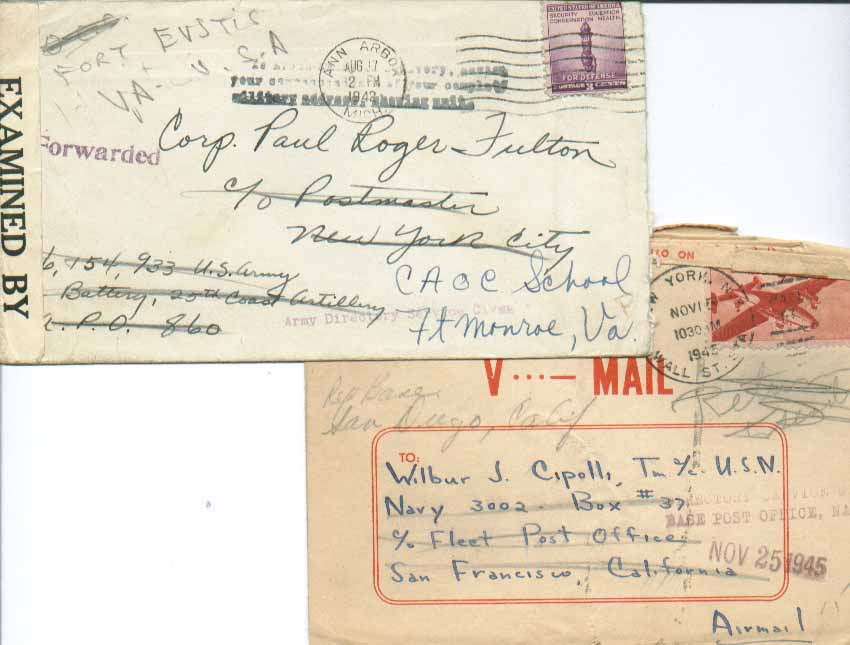 EXAMINED BY
FORT EUSTIS
VA. U.S.A
ANN ARBOR
AUG 17
2 PM
1943
MICH.
your complete
military address, showing unit.
UNITED STATES OF AMERICA
SECURITY EDUCATION
CONSERVATION HEALTH
FOR DEFENSE
POSTAGE 3 CENTS
Forwarded
Corp. Paul Roger Fulton
c/o Postmaster
New York City
154, 933 U.S. Army
Battery, 25th Coast Artillery
A. P. O. 860
CAOC School
Ft Monroe, Va.
Army Directory Service Given
YORK, N.
NOV 15
1030 AM
1945
WALL ST.
V ···— MAIL
Rep Base
San Diego, Calif
TO:
Wilbur J. Cipolli, Tm 1/c. U.S.N.
Navy 3002 - Box # 37
c/o Fleet Post Office
San Francisco, California
BASE POST OFFICE, NA
NOV 25 1945
Airmail